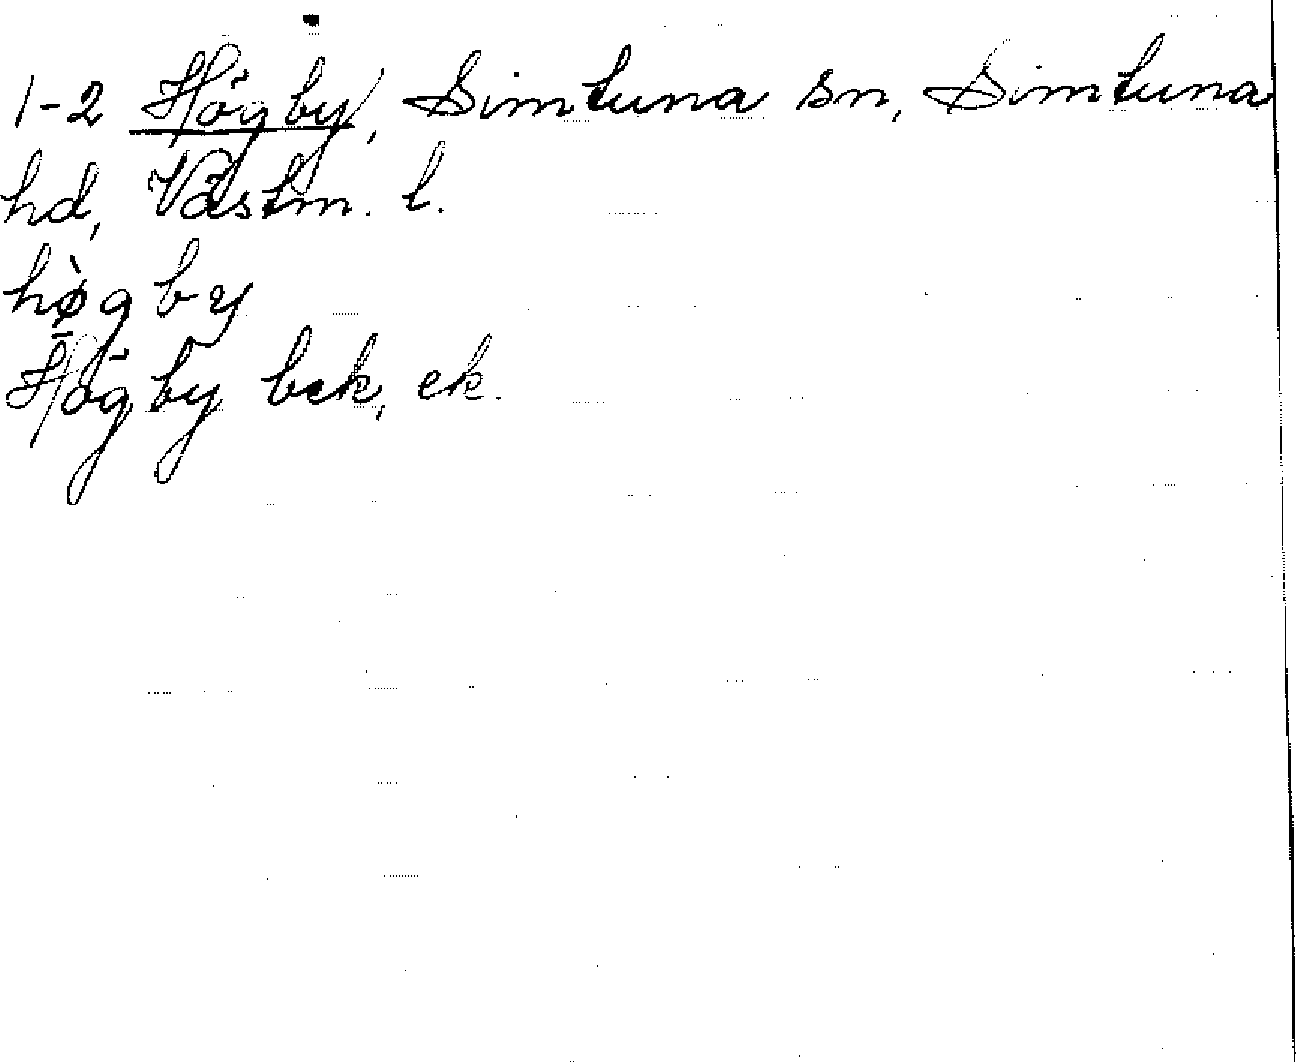 1-2 Högby, Simtuna sn, Simtuna
hd, Västm. l.
hø̀gby
Högby bek, ek.